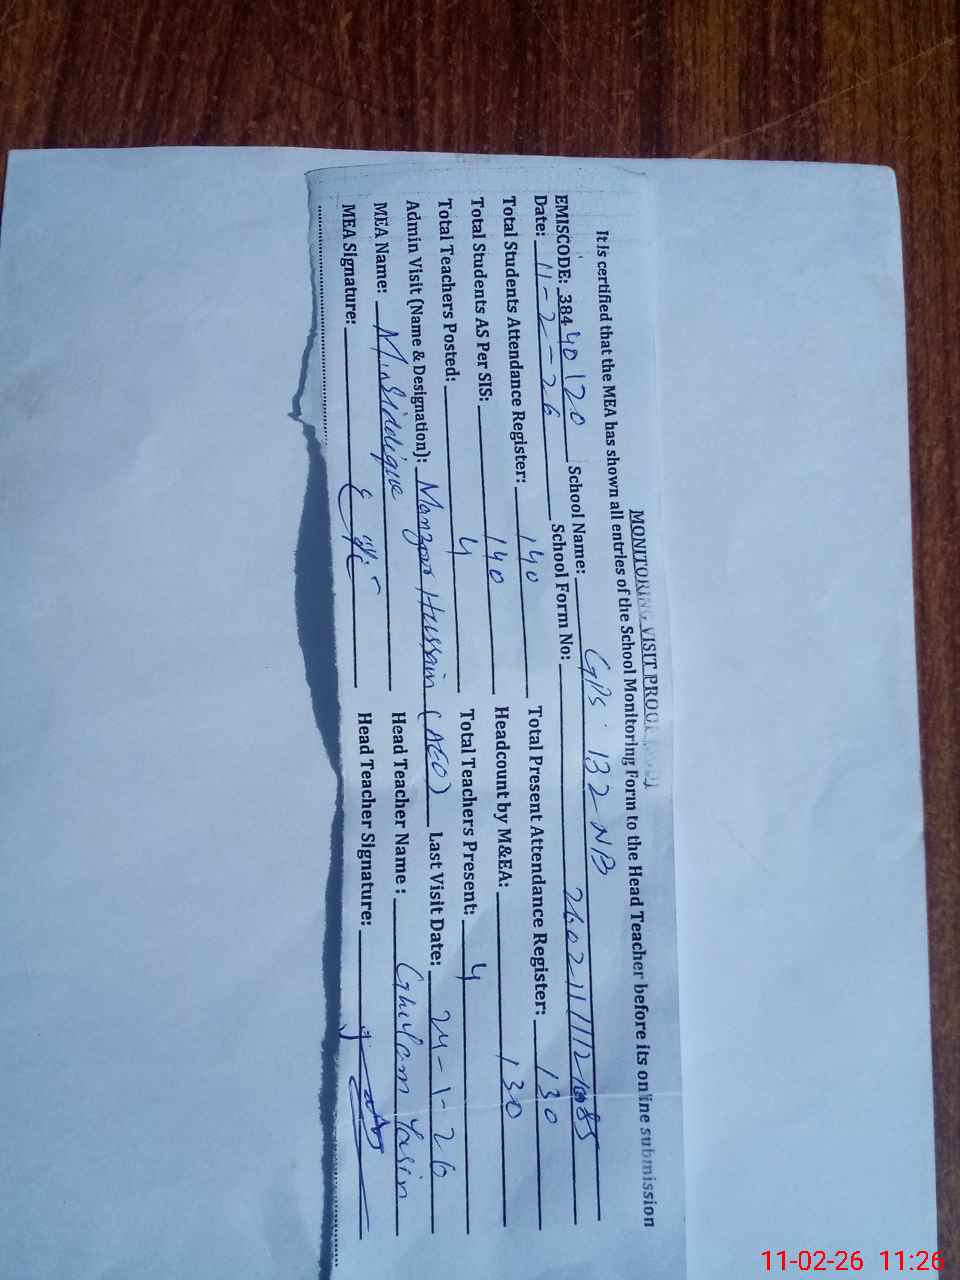 MONITORING VISIT PROOF
It is certified that the MEA has shown all entries of the School Monitoring Form to the Head Teacher before its online submission
EMISCODE: 38440120 School Name: GPS 132 NB
Date: 11-2-26 School Form No:
Total Students Attendance Register: 140 Total Present Attendance Register: 130
Total Students AS Per SIS: 140 Headcount by M&EA: 130
Total Teachers Posted: 4 Total Teachers Present: 4
Admin Visit (Name & Designation): Manzoor Hussain (AEO) Last Visit Date: 24-1-26
MEA Name: M. Siddique Head Teacher Name : Ghulam Yasin
MEA Signature: Head Teacher Signature:
11-02-26 11:26